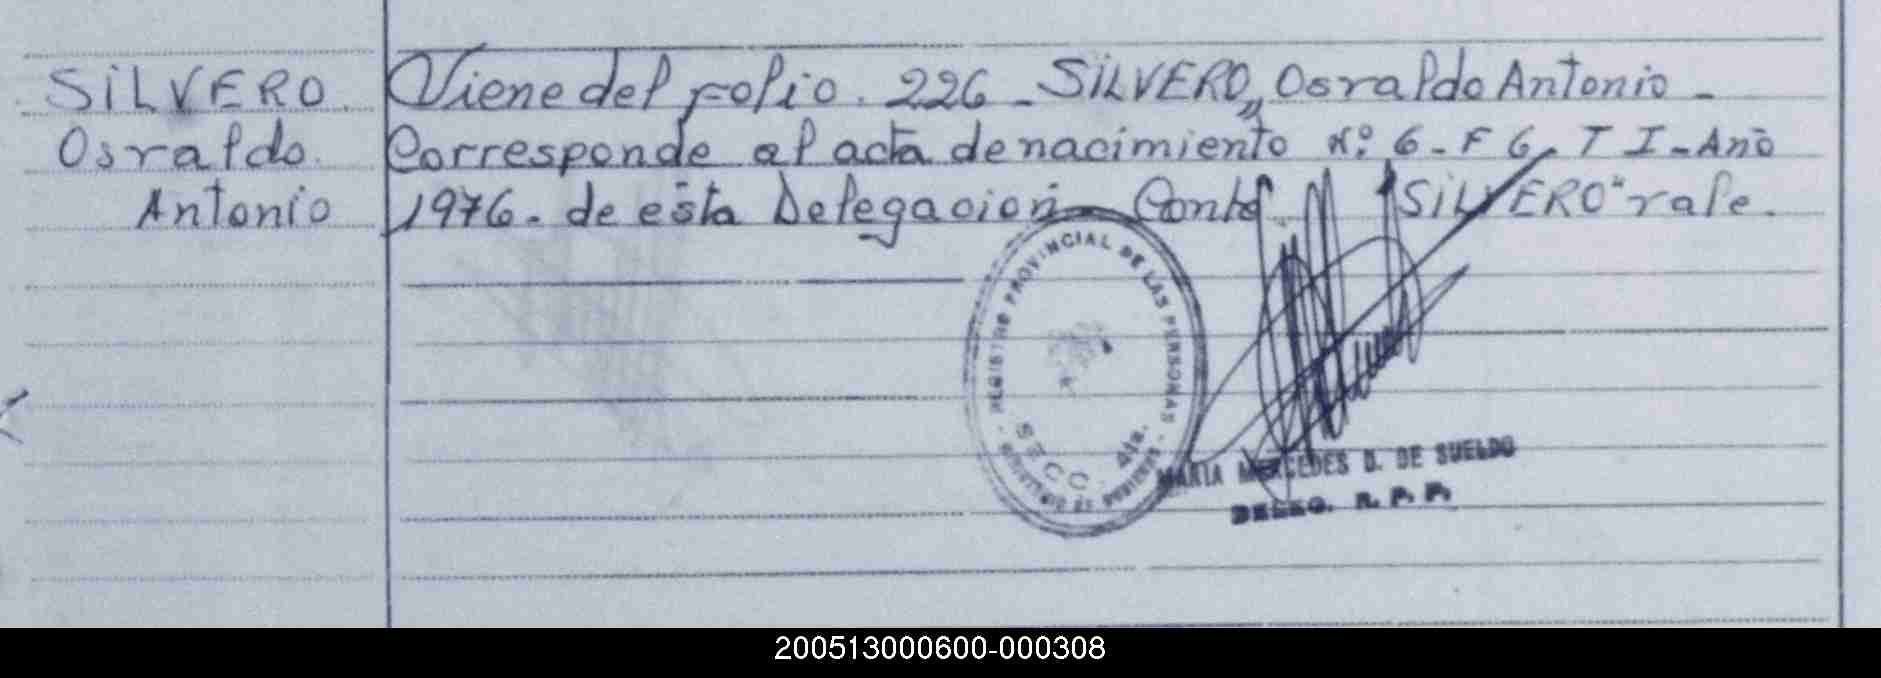 SILVERO
Osvaldo
Antonio
Viene del folio. 226 - SILVERO,, Osvaldo Antonio -
Corresponde al acta de nacimiento Nº 6 - F 6 - T I - Año
1976 - de esta Delegación Conto "SILVERO" vale.
REGISTRO PROVINCIAL DE LAS PERSONAS
SECC. 4ta.
MINISTERIO DE GOBIERNO
MARIA MERCEDES D. DE SUELDO
DELEG. R. P. P.
200513000600-000308